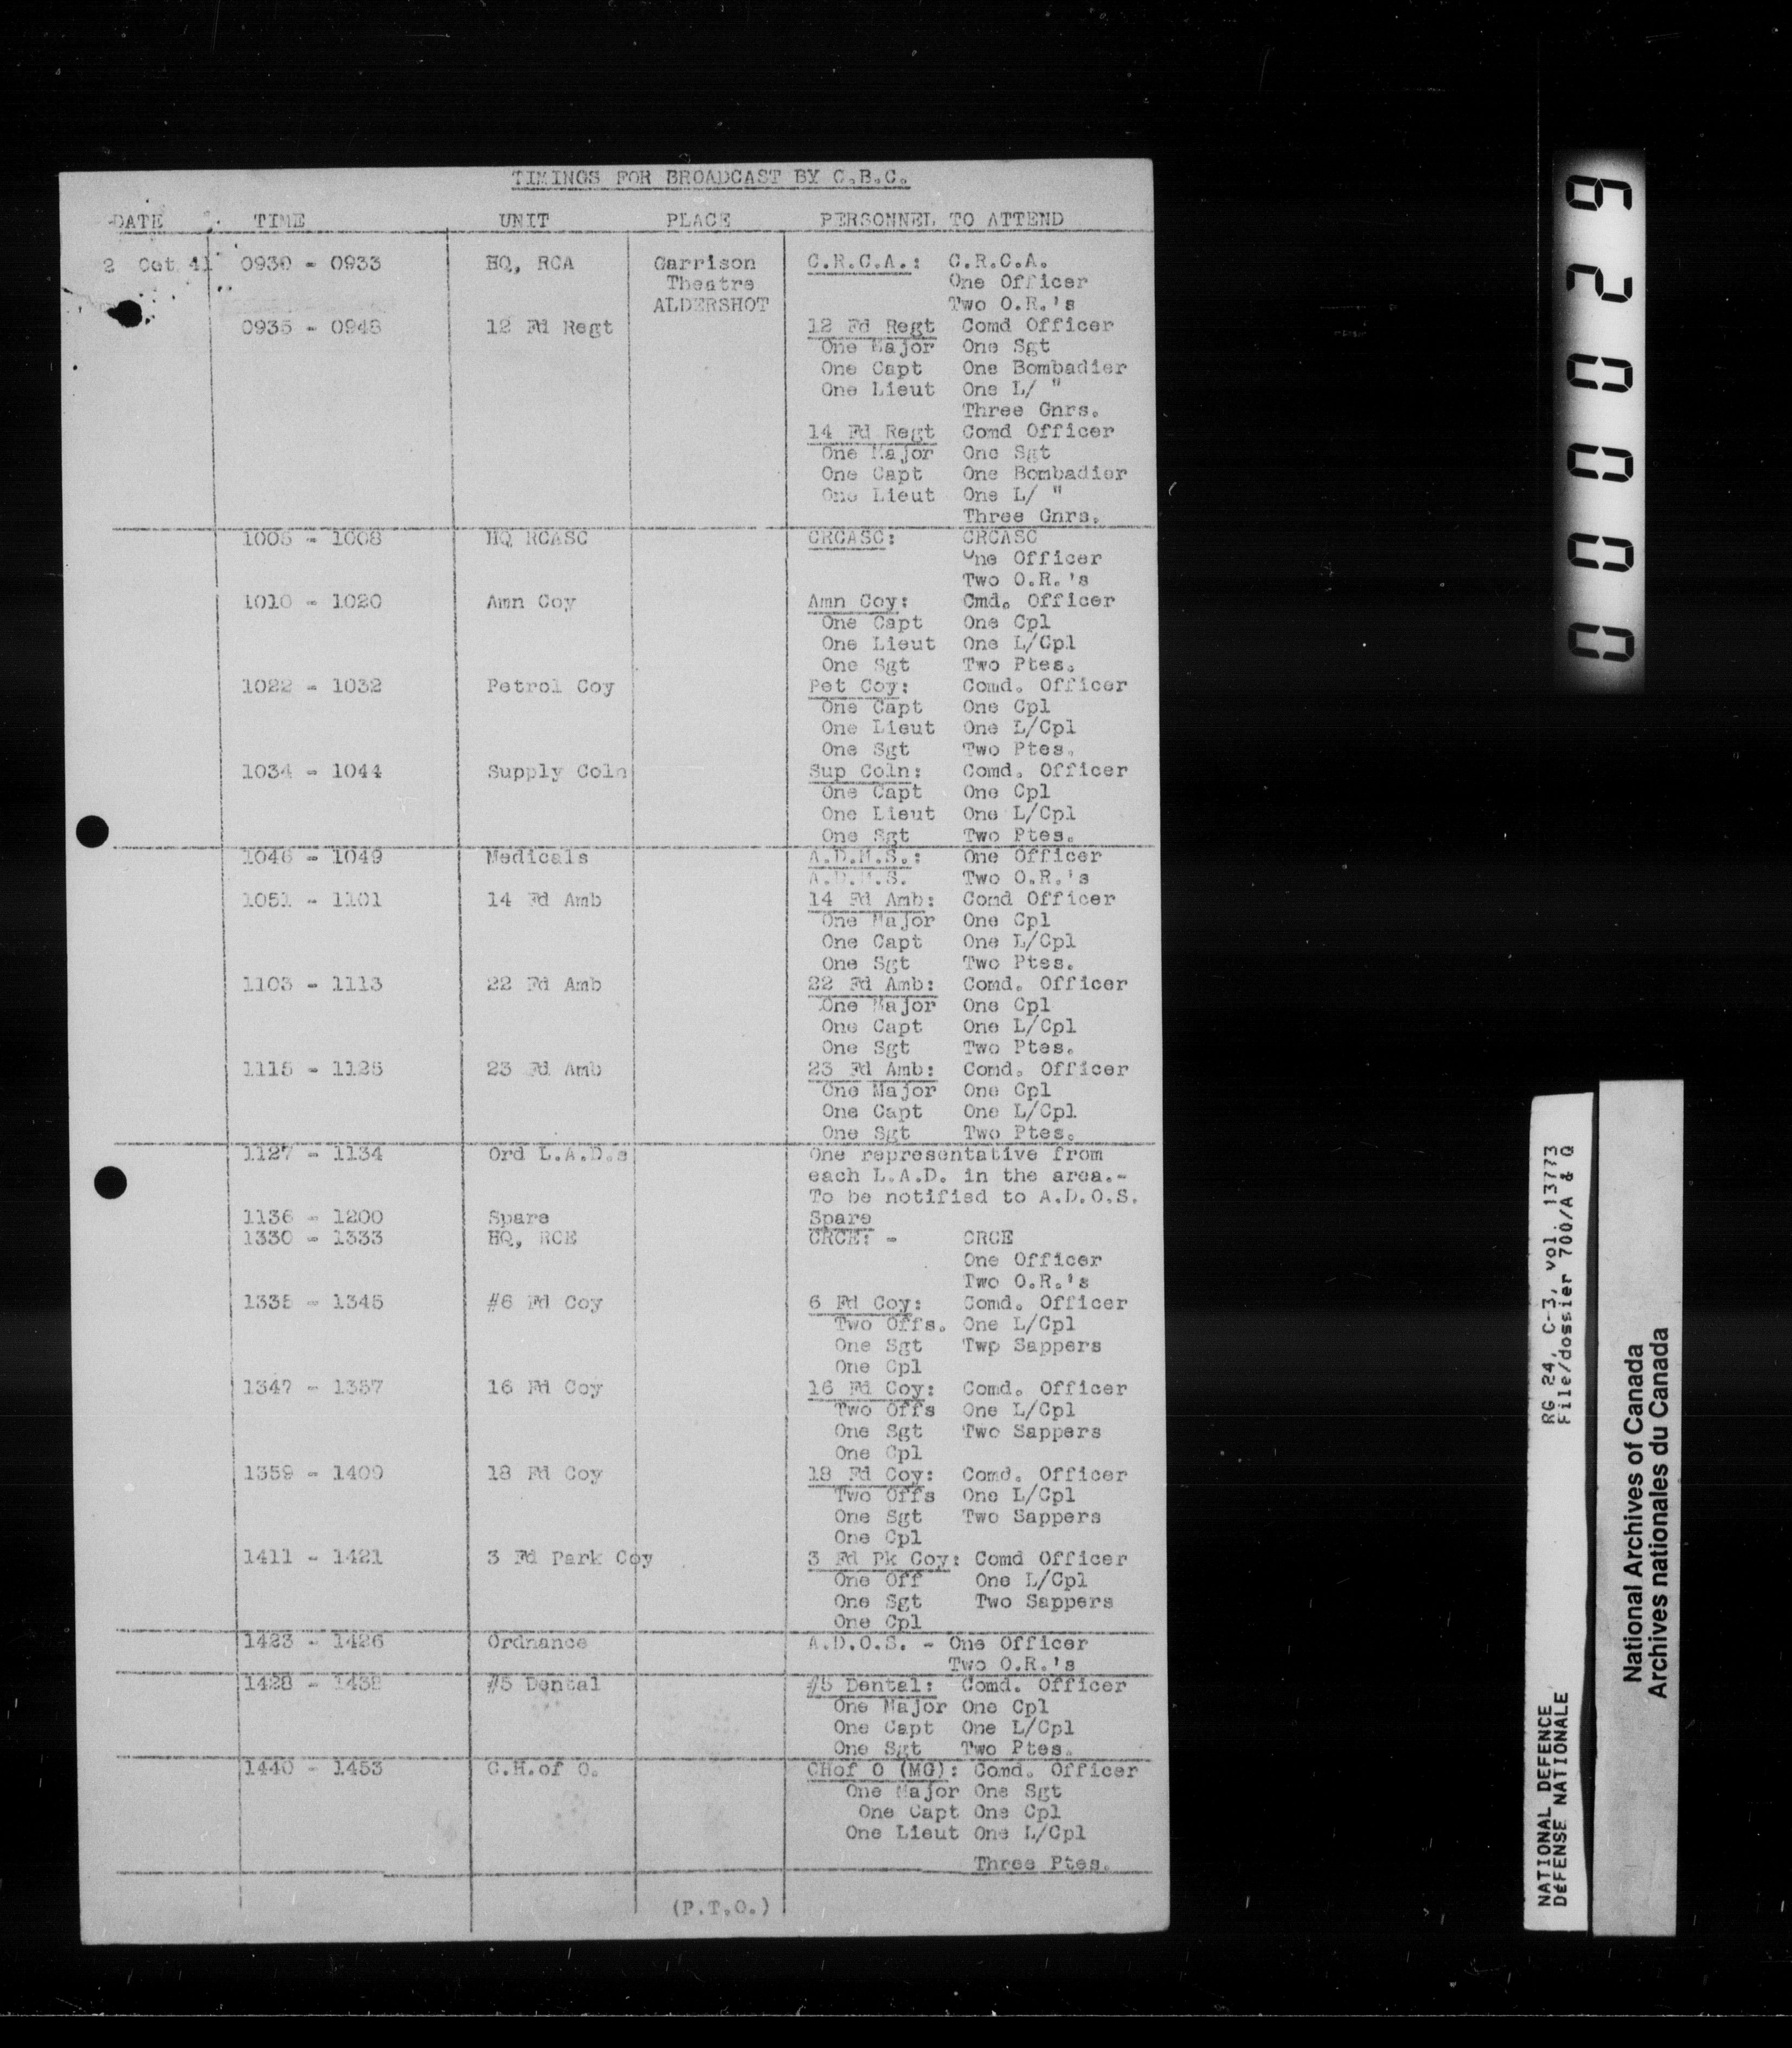 TIMINGS FOR BROADCAST BY C.B.C.
DATE TIME UNIT PLACE PERSONNEL TO ATTEND
2 Oct 41 0930 - 0933 HQ, RCA Garrison C.R.C.A.: C.R.C.A.
Theatre One Officer
ALDERSHOT Two O.R.'s
0935 - 0948 12 Fd Regt 12 Fd Regt Comd Officer
One Major One Sgt
One Capt One Bombadier
One Lieut One L/ "
Three Gnrs.
14 Fd Regt Comd Officer
One Major One Sgt
One Capt One Bombadier
One Lieut One L/ "
Three Gnrs.
1005 - 1008 HQ RCASC CRCASC: CRCASC
One Officer
Two O.R.'s
1010 - 1020 Amn Coy Amn Coy: Cmd. Officer
One Capt One Cpl
One Lieut One L/Cpl
One Sgt Two Ptes.
1022 - 1032 Petrol Coy Pet Coy: Comd. Officer
One Capt One Cpl
One Lieut One L/Cpl
One Sgt Two Ptes.
1034 - 1044 Supply Coln Sup Coln: Comd. Officer
One Capt One Cpl
One Lieut One L/Cpl
One Sgt Two Ptes.
1046 - 1049 Medicals A.D.M.S.: One Officer
A.D.M.S. Two O.R.'s
1051 - 1101 14 Fd Amb 14 Fd Amb: Comd Officer
One Major One Cpl
One Capt One L/Cpl
One Sgt Two Ptes.
1103 - 1113 22 Fd Amb 22 Fd Amb: Comd. Officer
One Major One Cpl
One Capt One L/Cpl
One Sgt Two Ptes.
1115 - 1125 23 Fd Amb 23 Fd Amb: Comd. Officer
One Major One Cpl
One Capt One L/Cpl
One Sgt Two Ptes.
1127 - 1134 Ord L.A.D.s One representative from
each L.A.D. in the area.-
To be notified to A.D.O.S.
1136 - 1200 Spare Spare
1330 - 1333 HQ, RCE CRCE: - CRCE
One Officer
Two O.R.'s
1335 - 1345 #6 Fd Coy 6 Fd Coy: Comd. Officer
Two Offs. One L/Cpl
One Sgt Twp Sappers
One Cpl
1347 - 1357 16 Fd Coy 16 Fd Coy: Comd. Officer
Two Offs One L/Cpl
One Sgt Two Sappers
One Cpl
1359 - 1409 18 Fd Coy 18 Fd Coy: Comd. Officer
Two Offs One L/Cpl
One Sgt Two Sappers
One Cpl
1411 - 1421 3 Fd Park Coy 3 Fd Pk Coy: Comd Officer
One Off One L/Cpl
One Sgt Two Sappers
One Cpl
1423 - 1426 Ordnance A.D.O.S. - One Officer
Two O.R.'s
1428 - 1438 #5 Dental #5 Dental: Comd. Officer
One Major One Cpl
One Capt One L/Cpl
One Sgt Two Ptes.
1440 - 1453 C.H.of O. CHof O (MG): Comd. Officer
One Major One Sgt
One Capt One Cpl
One Lieut One L/Cpl
Three Ptes.
(P.T.O.)
000029
NATIONAL DEFENCE RG 24, C-3, vol. 13773
DéFENSE NATIONALE File/dossier 700/A & Q
National Archives of Canada
Archives nationales du Canada